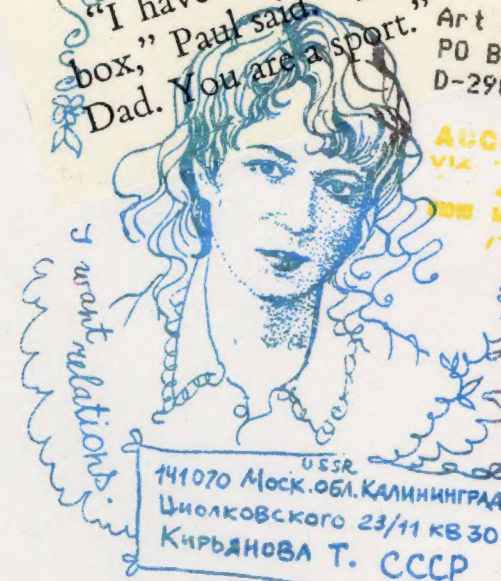 "I have
box," Paul said.
Dad. You are a sport."
Art
PO B
D-29
AUG
VIZ
I want relations.
USSR
141070 Моск. обл. КАЛИНИНГРАД
Циолковского 23/11 кв 30
Кирьянова Т. СССР